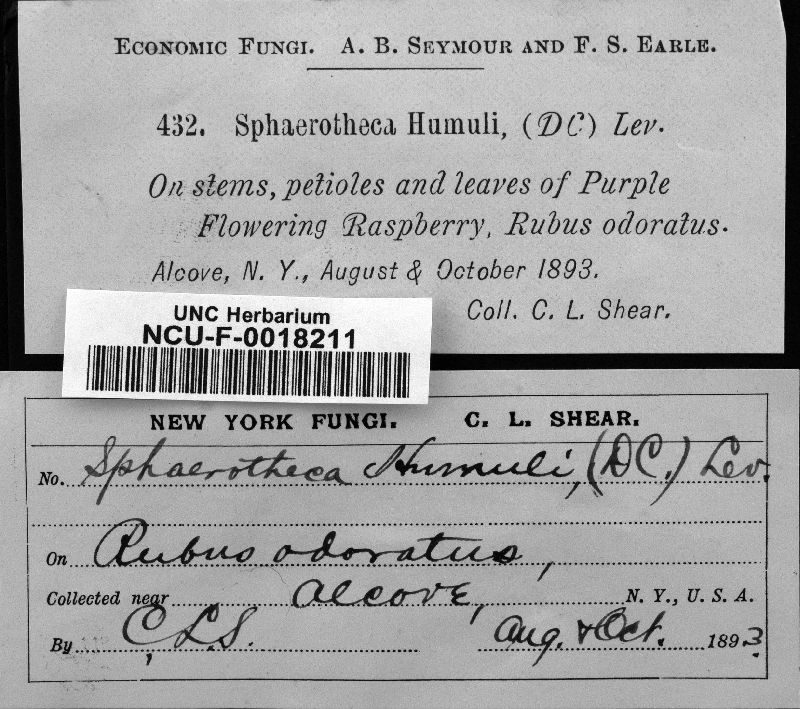 ECONOMIC FUNGI. A. B. SEYMOUR AND F. S. EARLE.
432. Sphaerotheca Humuli, (DC) Lev.
On stems, petioles and leaves of Purple
Flowering Raspberry, Rubus odoratus.
Alcove, N. Y., August & October 1893.
Coll. C. L. Shear.
UNC Herbarium
NCU-F-0018211
NEW YORK FUNGI. C. L. SHEAR.
No. Sphaerotheca Humuli, (DC.) Lev.
On Rubus odoratus,
Collected near Alcove, N. Y., U. S. A.
By C. L. S. Aug. & Oct. 1893.